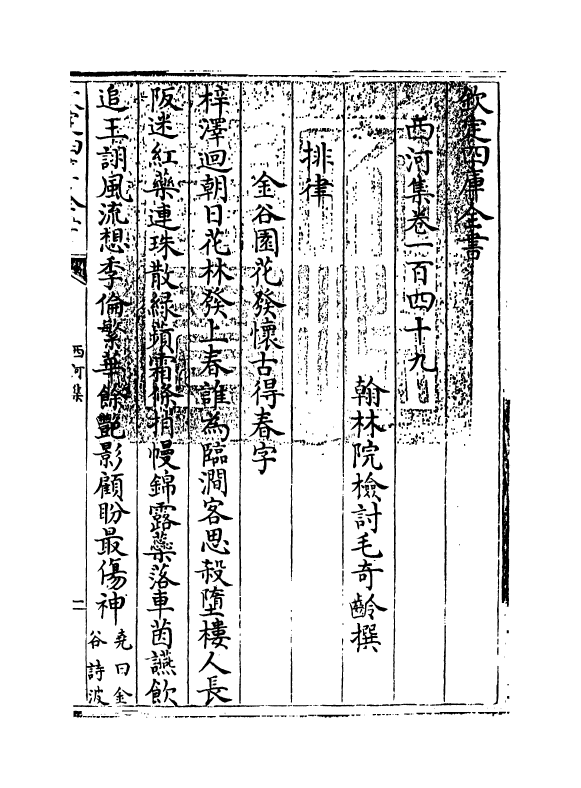 欽定四庫全書
西河集卷一百四十九
翰林院檢討毛奇齡撰
排律
金谷園花發懷古得春字
梓澤迴朝日花林發上春誰為臨澗客思殺墮樓人長
阪迷紅藥連珠散綠蘋霜條捎幔錦露蘂落車茵讌飲
追王詡風流想季倫繁華餘艷影顧盼最傷神
堯曰金
谷詩波
西河集